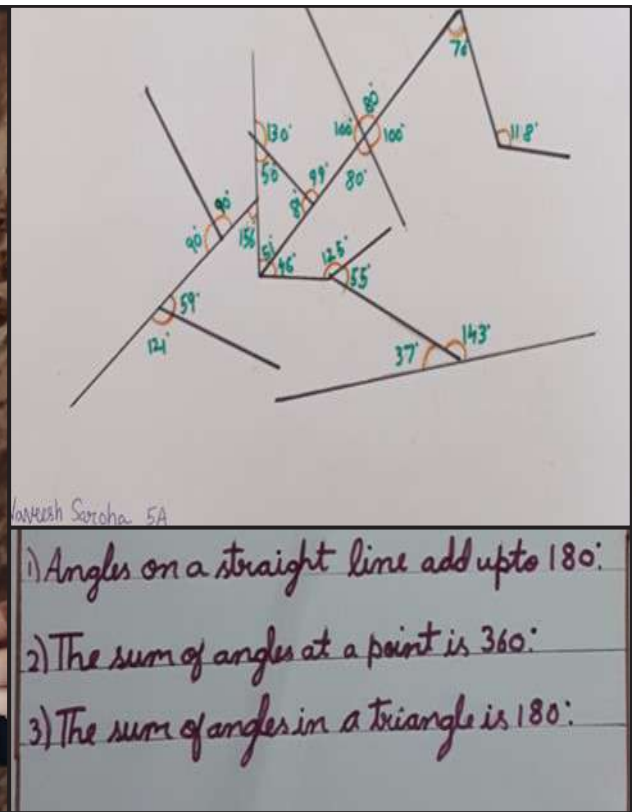 70°
80°
118°
130°
100°
100°
50
99°
80°
90°
90°
156°
51
46°
125°
55°
59°
121°
37°
143°
Saroha 5A
1) Angles on a straight line add upto 180°.
2) The sum of angles at a point is 360°.
3) The sum of angles in a triangle is 180°.